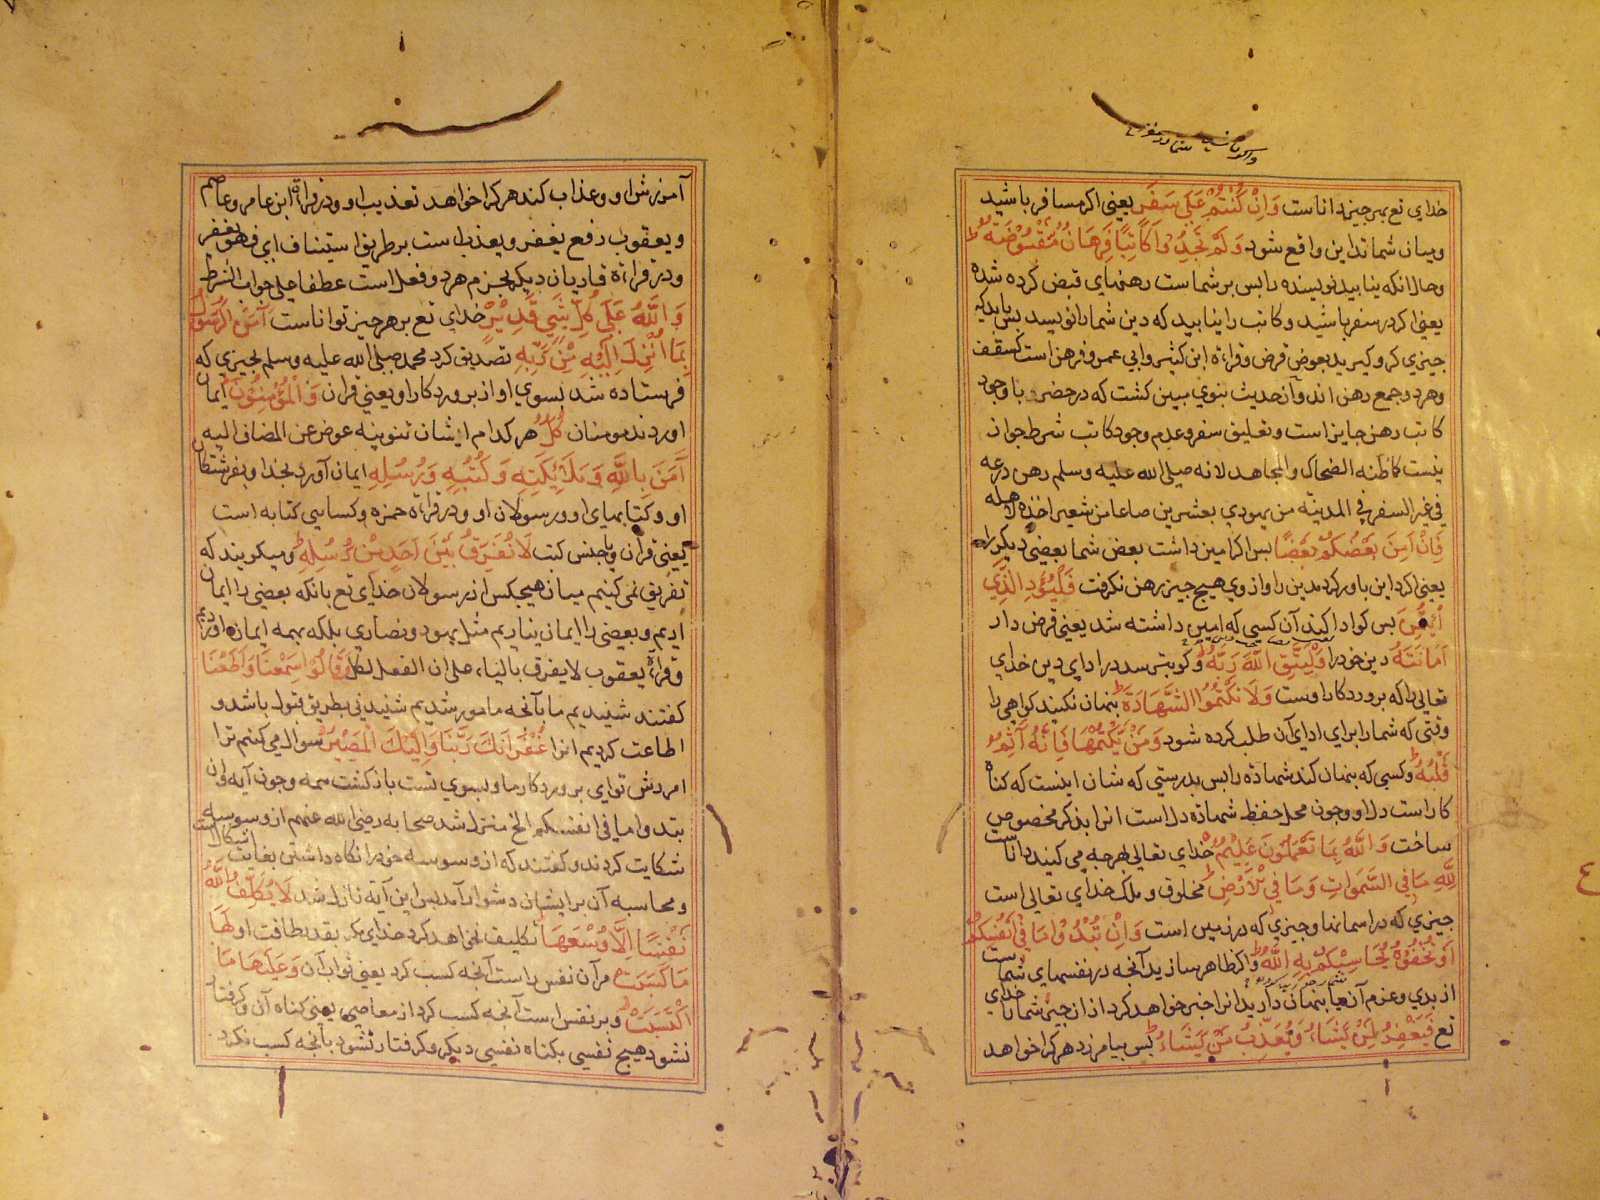 واكر باشید شما در سفر
خدای تع بهر چیز داناست وَاِنْ كُنْتُمْ عَلَی سَفَرٍ یعنی اكر مسافر باشید
و میان شما تداین واقع شود وَلَمْ تَجِدُوْا كَاتِبًا فَرِهَانٌ مَّقْبُوْضَةٌ
و حال انكه نیابید نویسنده را پس بر شماست رهنهای قبض كرده شده
یعنی اكر در سفر باشید و كاتب را نیابید كه دین شما را نویسد پس باید كه
چیزی كرو كیرید بعوض قرض و قراءة ابن كثیر و ابی عمر و فرهن است كسقف
و هر دو جمع رهن اند و از حدیث نبوی مبین كشت كه در حضر و با وجود
كاتب رهن جایز است و تعلیق سفر و عدم وجود كاتب شرط جواز
نیست كما ظنه الضحاك و المجاهد لانه صلی الله علیه و سلم رهن درعه
فی غیر السفر فی المدینة من یهودی بعشرین صاعا من شعیر اخذه لاهله
فَاِنْ اَمِنَ بَعْضُكُمْ بَعْضًا پس اكر امین داشت بعض شما بعضی دیكر را
یعنی اكر داین باور كرد مدین را و از وی هیچ چیز رهن نكرفت فَلْیُؤَدِّ الَّذِی
اؤْتُمِنَ پس كو ادا كند آن كسی كه امین داشته شد یعنی قرض دار
اَمَانَتَهُ دین خود را وَلْیَتَّقِ اللّٰهَ رَبَّهُ و كو بترسد در ادای دین خدای
تعالی را كه پروردكار اوست وَلَا تَكْتُمُوا الشَّهَادَةَ پنهان نكنید كواهی را
وقتی كه شما را برای ادای آن طلب كرده شود وَمَنْ یَّكْتُمْهَا فَاِنَّهُ آثِمٌ
قَلْبُهُ و كسی كه پنهان كند شهادة را پس بدرستی كه شان اینست كه كناه
كار است دل او و چون محل حفظ شهادة دل است انرا بذكر مخصوص
ساخت وَاللّٰهُ بِمَا تَعْمَلُوْنَ عَلِیْمٌ خدای تعالی بهر چه می كنید داناست
لِلّٰهِ مَا فِی السَّمٰوَاتِ وَمَا فِی الْاَرْضِ مخلوق و ملك خدای تعالی است
چیزی كه در اسمانها و چیزی كه در زمین است وَاِنْ تُبْدُوْا مَا فِی اَنْفُسِكُمْ
اَوْ تُخْفُوْهُ یُحَاسِبْكُمْ بِهِ اللّٰهُ و اكر ظاهر سازید آنچه در نفسهای شماست
از بدی و عزم آن یا پنهان دارید انرا خبر خواهد كرد از ان چیز شما را خدای
تع فَیَغْفِرُ لِمَنْ یَّشَاءُ وَیُعَذِّبُ مَنْ یَّشَاءُ پس بیامرزد هر كرا خواهد
آمرزش او و عذاب كند هر كرا خواهد تعذیب او و در قراءة ابن عامر و عاصم
و یعقوب رفع یغفر و یعذب است بر طریق استیناف ای فهو یغفر
و در قراءة قاریان دیكر بجزم هر دو فعل است عطفا علی جواب الشرط
وَاللّٰهُ عَلَی كُلِّ شَیْءٍ قَدِیْرٌ خدای تع بر هر چیز تواناست آمَنَ الرَّسُوْلُ
بِمَا اُنْزِلَ اِلَیْهِ مِنْ رَّبِّهِ تصدیق كرد محمد صلی الله علیه و سلم بچیزی كه
فرستاده شد بسوی او از پروردكار او یعنی قران وَالْمُؤْمِنُوْنَ ایمان
اوردند مومنان كُلٌّ هر كدام ایشان تنوینه عوض عن المضاف الیه
آمَنَ بِاللّٰهِ وَمَلٰئِكَتِهِ وَكُتُبِهِ وَرُسُلِهِ ایمان آورد بخدا و بفرشتكان
او و كتابهای او و رسولان او و در قراءة حمزه و كسایی كتابه است
یعنی قران یا جنس كتب لَا نُفَرِّقُ بَیْنَ اَحَدٍ مِّنْ رُّسُلِهِ و میكویند كه
تفریق نمی كنیم میان هیچكس از رسولان خدای تع بانكه بعضی را ایمان
اریم و بعضی را ایمان نیاریم مثل یهود و نصاری بلكه بهمه ایمان اوردیم
و قراءة یعقوب لا یفرق بالیاء علی ان الفعل لكل وَقَالُوْا سَمِعْنَا وَاَطَعْنَا
كفتند شنیدیم ما بآنچه مامور شدیم شنیدنی بطریق قبول باشد و
اطاعت كردیم انرا غُفْرَانَكَ رَبَّنَا وَاِلَیْكَ الْمَصِیْرُ سوال می كنیم ترا
امرزش تو ای پروردكار ما و بسوی تست باز كشت همه و چون آیه وان
تبدوا ما فی انفسكم الخ منزل شد صحابه رضی الله عنهم از وسوسه
شكایت كردند و كفتند كه از وسوسه خود را نكاه داشتن بغایت اشكال است
و محاسبه آن بر ایشان دشوار آمد پس این آیة نازل شد لَا یُكَلِّفُ اللّٰهُ
نَفْسًا اِلَّا وُسْعَهَا تكلیف نخواهد كرد خدای مكر بقدر طاقت او لَهَا
مَا كَسَبَتْ مر آن نفس راست آنچه كسب كرد یعنی ثواب آن وَعَلَیْهَا مَا
اكْتَسَبَتْ و بر نفس است آنچه كسب كرد از معاصی یعنی كناه آن و كرفتار
نشود هیچ نفسی بكناه نفسی دیكر و كرفتار نشود بآنچه كسب نكرد